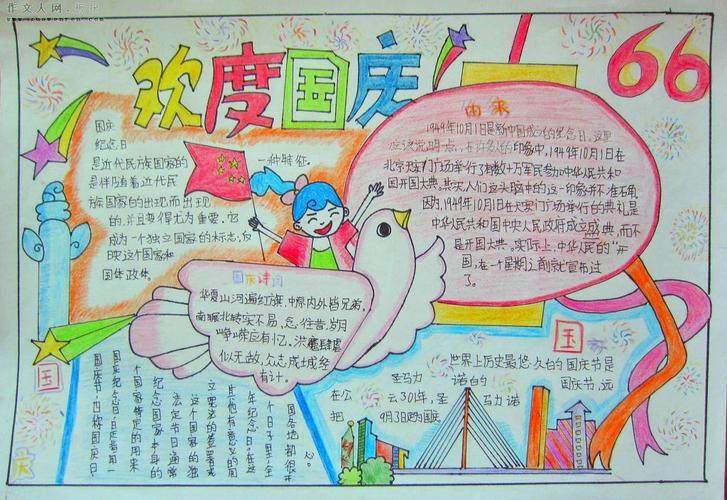 作文人网
欢度国庆
66
国庆
纪念日
是近代民族国家的
一种特征,
是伴随着近代民
族国家的出现而出现
的,并且变得尤为重要。它
成为一个独立国家的标志,反
映这个国家和
国体政体
由来
1949年10月1日是新中国成立的纪念日。这里
应该说明一点,在许多人的印象中,1949年10月1日在
北京天安门广场举行了有数十万军民参加中华人民共和
国开国大典。其实,人们这头脑中的这一印象并不准确。
因为,1949年10月1日在天安门广场举行的典礼是
中华人民共和国中央人民政府成立盛典,而不
是开国大典。实际上,中华人民的"开
国,在一个星期之前就宣布过
了。
国庆诗词
华夏山河遍红旗,中原内外皆兄弟,
南振北兴实不易,忘,往昔,岁月
峥嵘应有忆。洪魔肆虐
似无敌,众志成城终
有计。
国庆节,也称国庆日、
国庆纪念日,日是指由一
个国家特定的用来
纪念国家本身的
法定节日通常
这个国家的独
的签署或
其他有意义的周
年纪念日,在这
个日子里,全
国各地都很开
心。
国
庆
国家
世界上历史最悠久的国庆节是
圣马力诺的国庆节,远
在公云301年,圣马力诺
把9月3日定为国庆